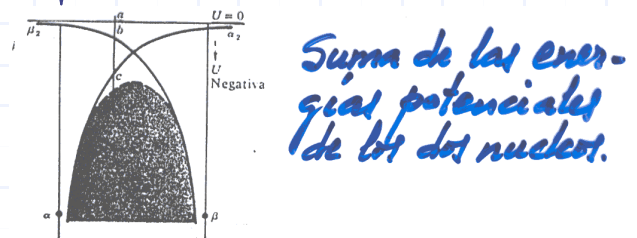 a
U = 0
μ₂
b
α₂
U
c
Negativa
α
β
Suma de las ener-
gías potenciales
de los dos nucleos.